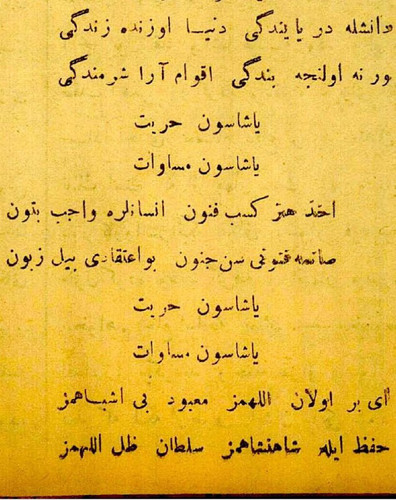 دانشله در پایندگی دنیا اوزنده زندگی
ور نه اولنجه بندگی اقوام آرا شرمندگی
یاشاسون حریت
یاشاسون مساوات
اخذ هنر کسب فنون انسانلره واجب بتون
صانمه فنونی سن جنون بواعتقادی بیل زبون
یاشاسون حریت
یاشاسون مساوات
ای بر اولان اللهمز معبود بی اشباهمز
حفظ ایله شاهنشاهمز سلطان ظل اللهمز